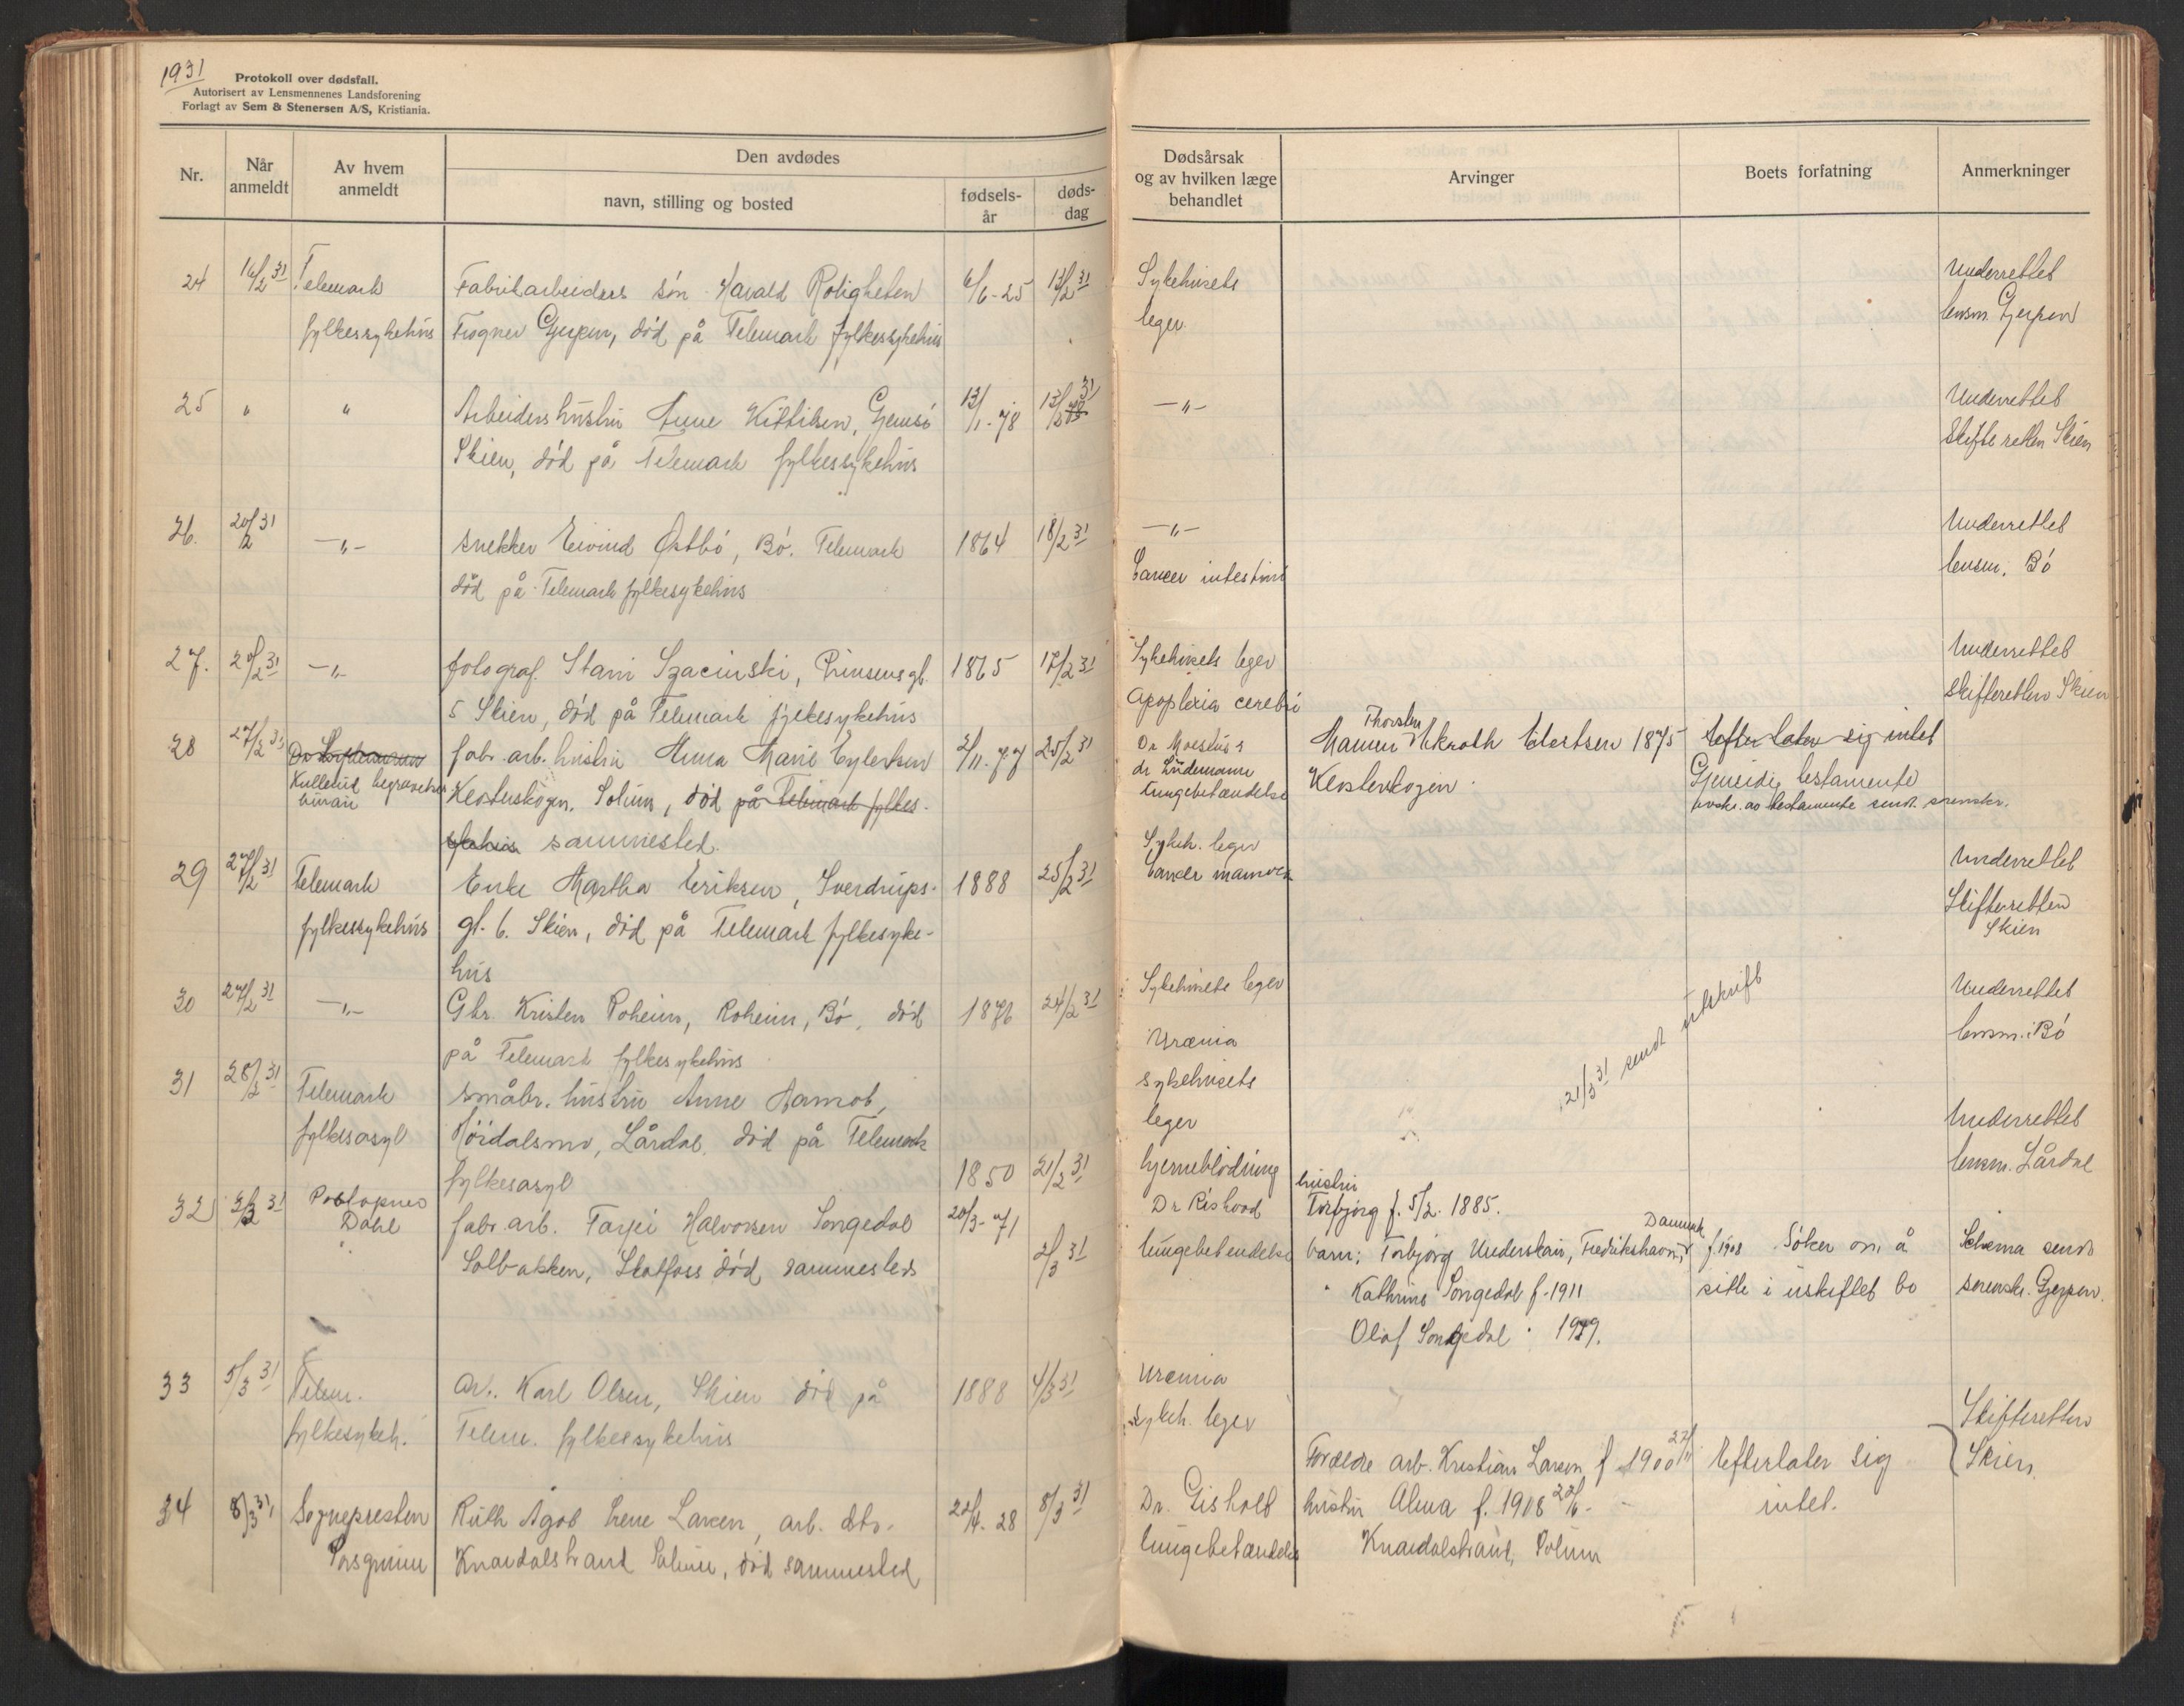 1931
Protokoll over dødsfall.
Autorisert av Lensmennenes Landsforening
Forlagt av Sem & Stenersen A/S, Kristiania.
Nr.
Når anmeldt
Av hvem anmeldt
Den avdødes
navn, stilling og bosted
fødsels-år
døds-dag
Dødsårsak og av hvilken læge behandlet
Arvinger
Boets forfatning
Anmerkninger
24 16/2 31 Telemark Fabrikarbeiders søn Harald Roligheten 6/6-25 13/2 31 Sykehusets Underrettet
fylkessykehus Frogner Gjerpen, død på Telemark fylkessykehus leger lensm. Gjerpen
25 " " Arbeiders hustru Anne Kittilsen, Gjemsø 13/1-78 13/2 31 -"- Underrettet
Skien, død på Telemark fylkessykehus Skifteretten Skien
26. 20/2 31 -"- snekker Eivind Østbø, Bø. Telemark 1864 18/2 31 -"- Underrettet
død på Telemark fylkesykehus Cancer intestini lensm. Bø
27. 20/2 31 -"- fotograf Stani Szacinski, Prinsensgt. 1865 17/2 31 Sykehusets leger Underrettet
5 Skien, død på Telemark fylkesykehus Apoplexia cerebri skifteretten Skien
28 27/2 31 fabr. arb. hustru Anna Marie Eylertsen 2/11-77 25/2 31 Dr Moestue Thorsten Eilertsen 1875 Efterlater sig intet
Kulletud begravelses Klosterskogen, Solum, død på Telemark fylkes- dr Lindemann Klosterskogen. Gjensidig testamente
sykehus sammested. lungebetændelse avskr. av testamente sendt sorenskr.
29 27/2 31 Telemark Enke Martha Eriksen, Sverdrups- 1888 25/2 31 Sykeh. leger Underrettet
fylkessykehus gt. 6. Skien, død på Telemark fylkesyke- Cancer mammae Skifteretten
hus Skien
30 27/2 31 -"- Gbr. Kristen Roheim, Roheim, Bø, død 1876 24/2 31 Sykehusets leger Underrettet
på Telemark fylkesykehus Uræmia lensm. i Bø
21/3 31 sendt utskrift
31 28/2 31 Telemark småbr. hustru Anne Aamot, sykehusets
fylkesasyl Høidalsmo, Lårdal, død på Telemark leger Underrettet
fylkesasyl 1850 21/2 31 hjerneblødning lensm. Lårdal
32 3/3 31 Postopner Dahl fabr. arb. Tarjei Halvorsen Songedal 20/3-71 Dr Rishovd hustru Torbjørg f. 5/2. 1885.
Solbakken, Skotfoss død sammesteds 2/3 31 lungebetendelse barn: Torbjørg Underskair, Fredrikshavn, Danmark f 1908 Søker om å Schema sendt
" Kathrine Songedal f. 1911 sitte i uskiftet bo sorenskr. Gjerpen.
Olaf Songedal " 1919.
33 5/3 31 Telem. Arb. Karl Olsen, Skien død på 1888 4/3 31 Uræmia
fylkesykeh. Telem. fylkessykehus sykeh. leger Skifteretten
Forældre arb. Kristian Larsen f 1900 27/11 Efterlater sig Skien
34 8/3 31 Sognepresten Ruth Ågot Irene Larsen, arb. dtr. 22/4-28 8/3 31 Dr. Gisholt hustru Alma f. 1908 22/6- intet.
Porsgrunn Knardalstrand Solum, død sammested lungebetændelse Knardalstrand, Solum